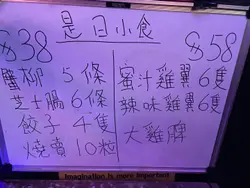 是日小食
$38
蟹柳 5條
芝士腸 6條
餃子 4隻
燒賣 10粒
$58
蜜汁雞翼 6隻
辣味雞翼 6隻
大雞髀
Imagination is more important